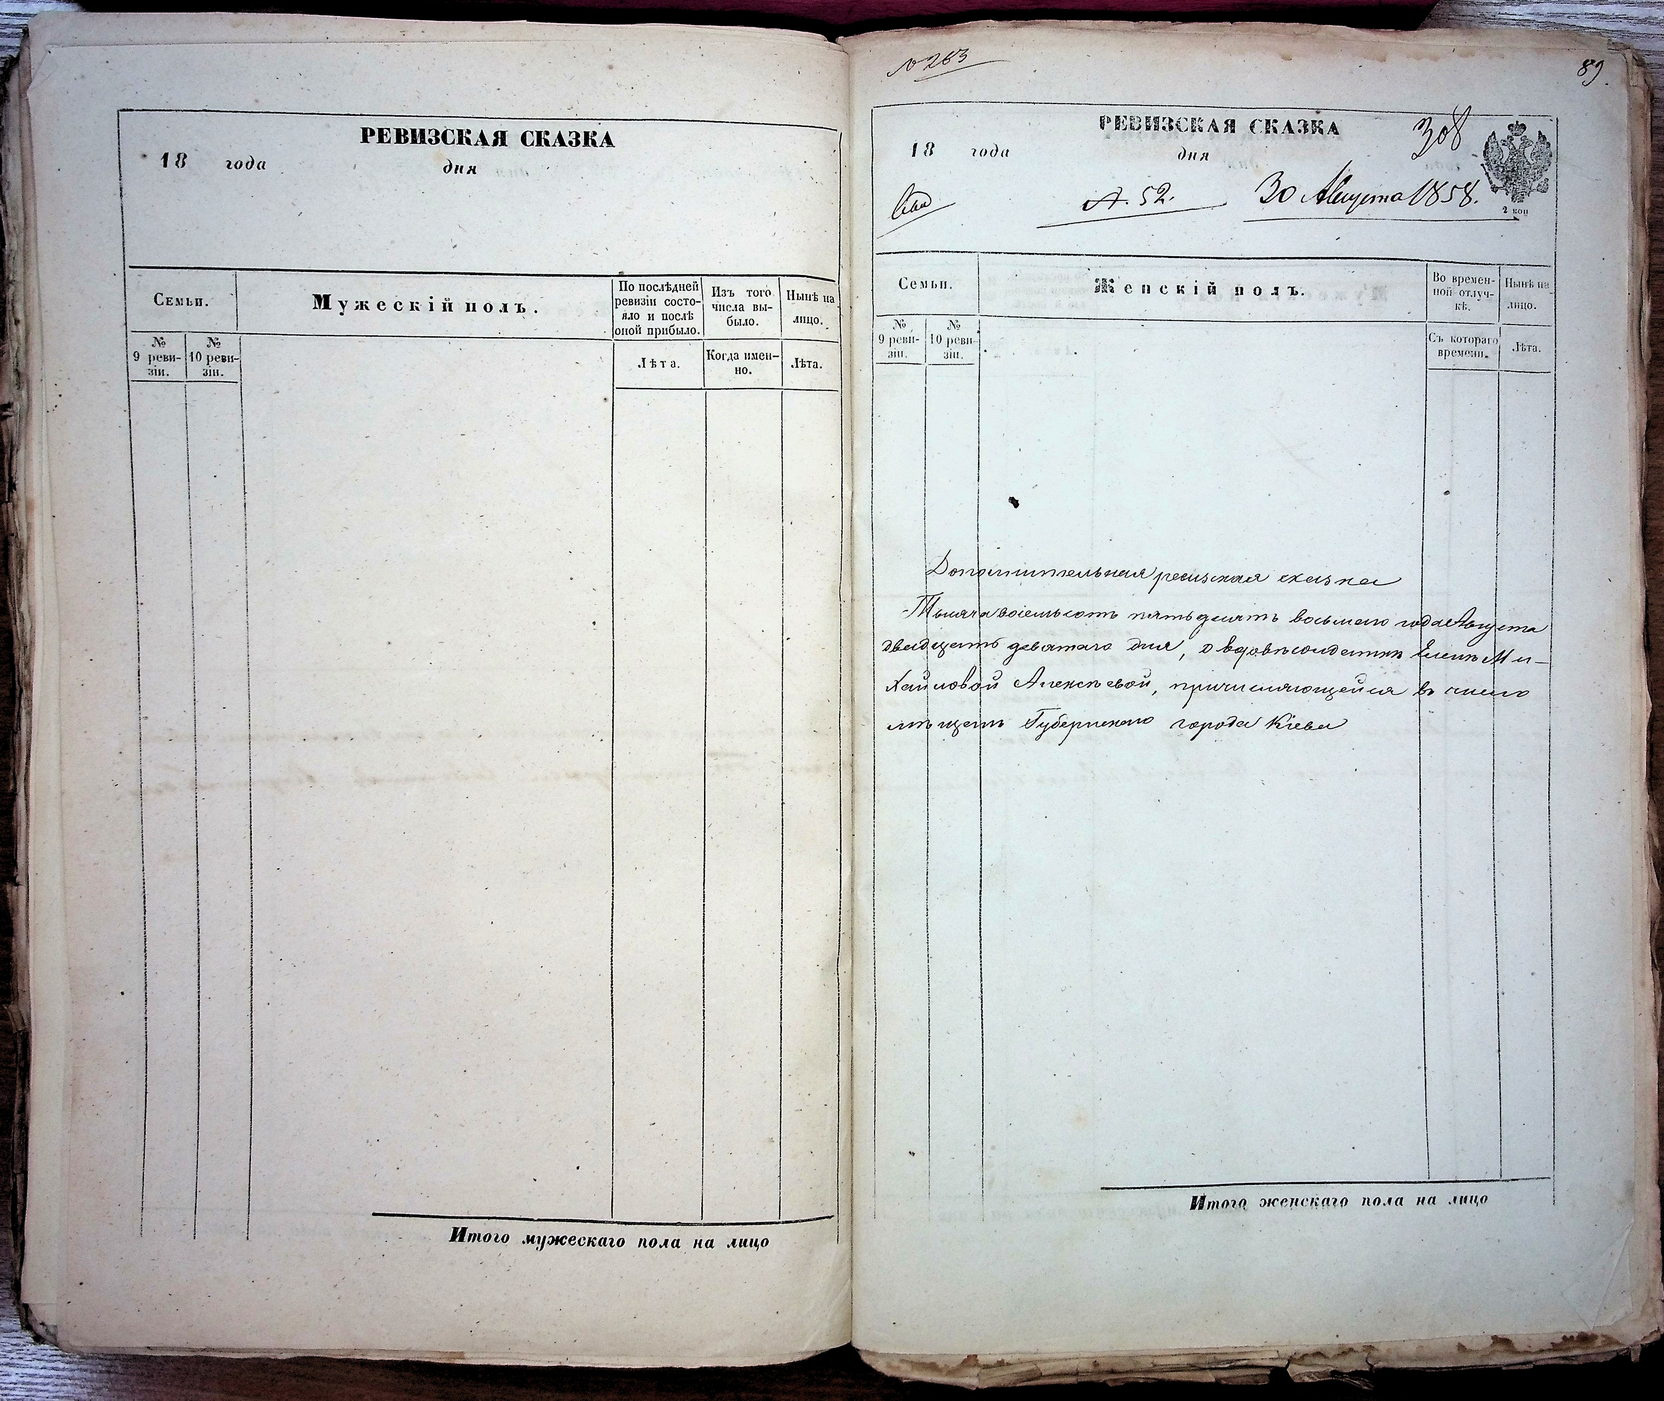 РЕВИЗСКАЯ СКАЗКА
18 года дня
Семьи.
Мужескій полъ.
По послѣдней ревизіи состо-
яло и послѣ оной прибыло.
Изъ того числа вы-
было.
Нынѣ на лицо.
№ 9 реви-
зіи.
№ 10 реви-
зіи.
Лѣта.
Когда имен-
но.
Лѣта.
Итого мужескаго пола на лицо
№ 263
89.
РЕВИЗСКАЯ СКАЗКА
308
18 года дня
А. 52. 30 Августа 1858.
2 коп
Семьи.
Женскій полъ.
Во времен-
ной отлуч-
кѣ.
Нынѣ на лицо.
№ 9 реви-
зіи.
№ 10 реви-
зіи.
Съ котораго времени.
Лѣта.
Дополнительная ревизская сказка
Тысяча восемьсотъ пятьдесятъ восьмаго года Августа
двадцать девятаго дня, о вдовѣ солдаткѣ Еленѣ Ми-
хайловой Алексѣевой, причисляющейся въ число
мѣщанъ Губернскаго города Кіева
Итого женскаго пола на лицо